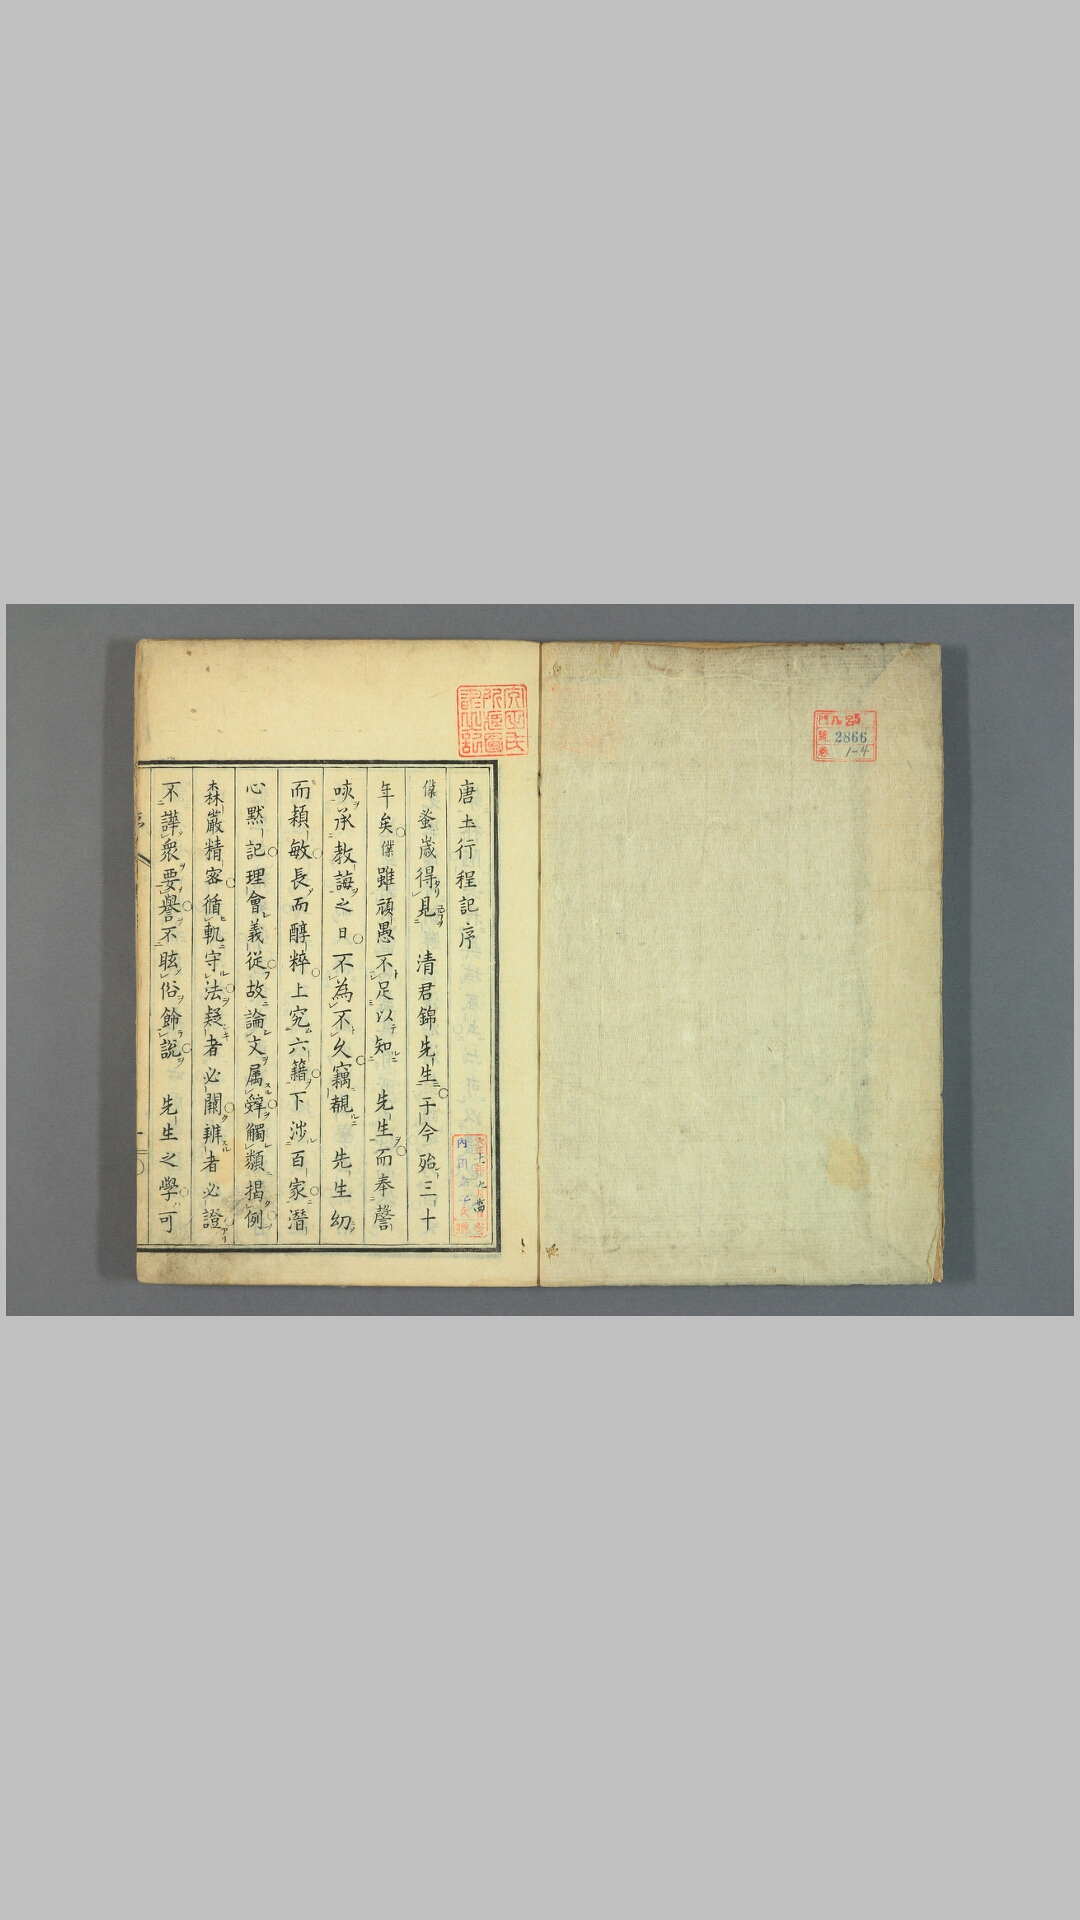 2866
1-4
唐土行程記序
僕蚤歲得見　清君錦先生于今殆三十
年矣僕雖頑愚不足以知　先生而奉謦
咳承教誨之日不為不久竊覩　先生幼
而穎敏長而醇粹上究六籍下涉百家潛
心默記理會義從故論文属辭觸類揭例
森嚴精密循軌守法疑者必闕辨者必證
不譁衆要譽不眩俗飾說　先生之學可